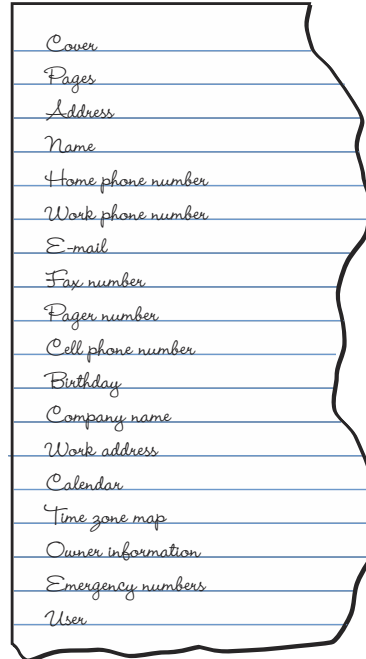 Cover
Pages
Address
Name
Home phone number
Work phone number
E-mail
Fax number
Pager number
Cell phone number
Birthday
Company name
Work address
Calendar
Time zone map
Owner information
Emergency numbers
User